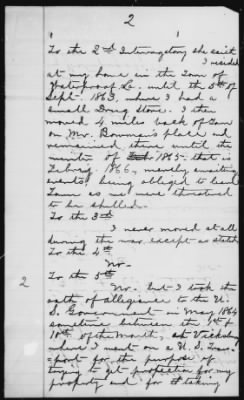 2
To the 2nd Interrogatory she saith
I resided
at my home in the Town of
Waterproof La. until the 5th of
Sept. 1863, where I had a
small Drug Store. I then
moved 4 miles back of Town
on Mr. Bowman's place and
remained there until the
winter of 1865 that is
1866, merely awaiting
events, being obliged to leave
Town as we were threatened
to be shelled.
To the 3rd
I never moved at all
during the war except as stated
To the 4th
No.
To the 5th
2
No. but I took the
oath of allegiance to the U.
S. Government in May 1864
sometime between the 1st &
10th of the month, at Vicksburg
where I went on a U. S. Trans-
port for the purpose of
trying to get protection for my
property and for taking